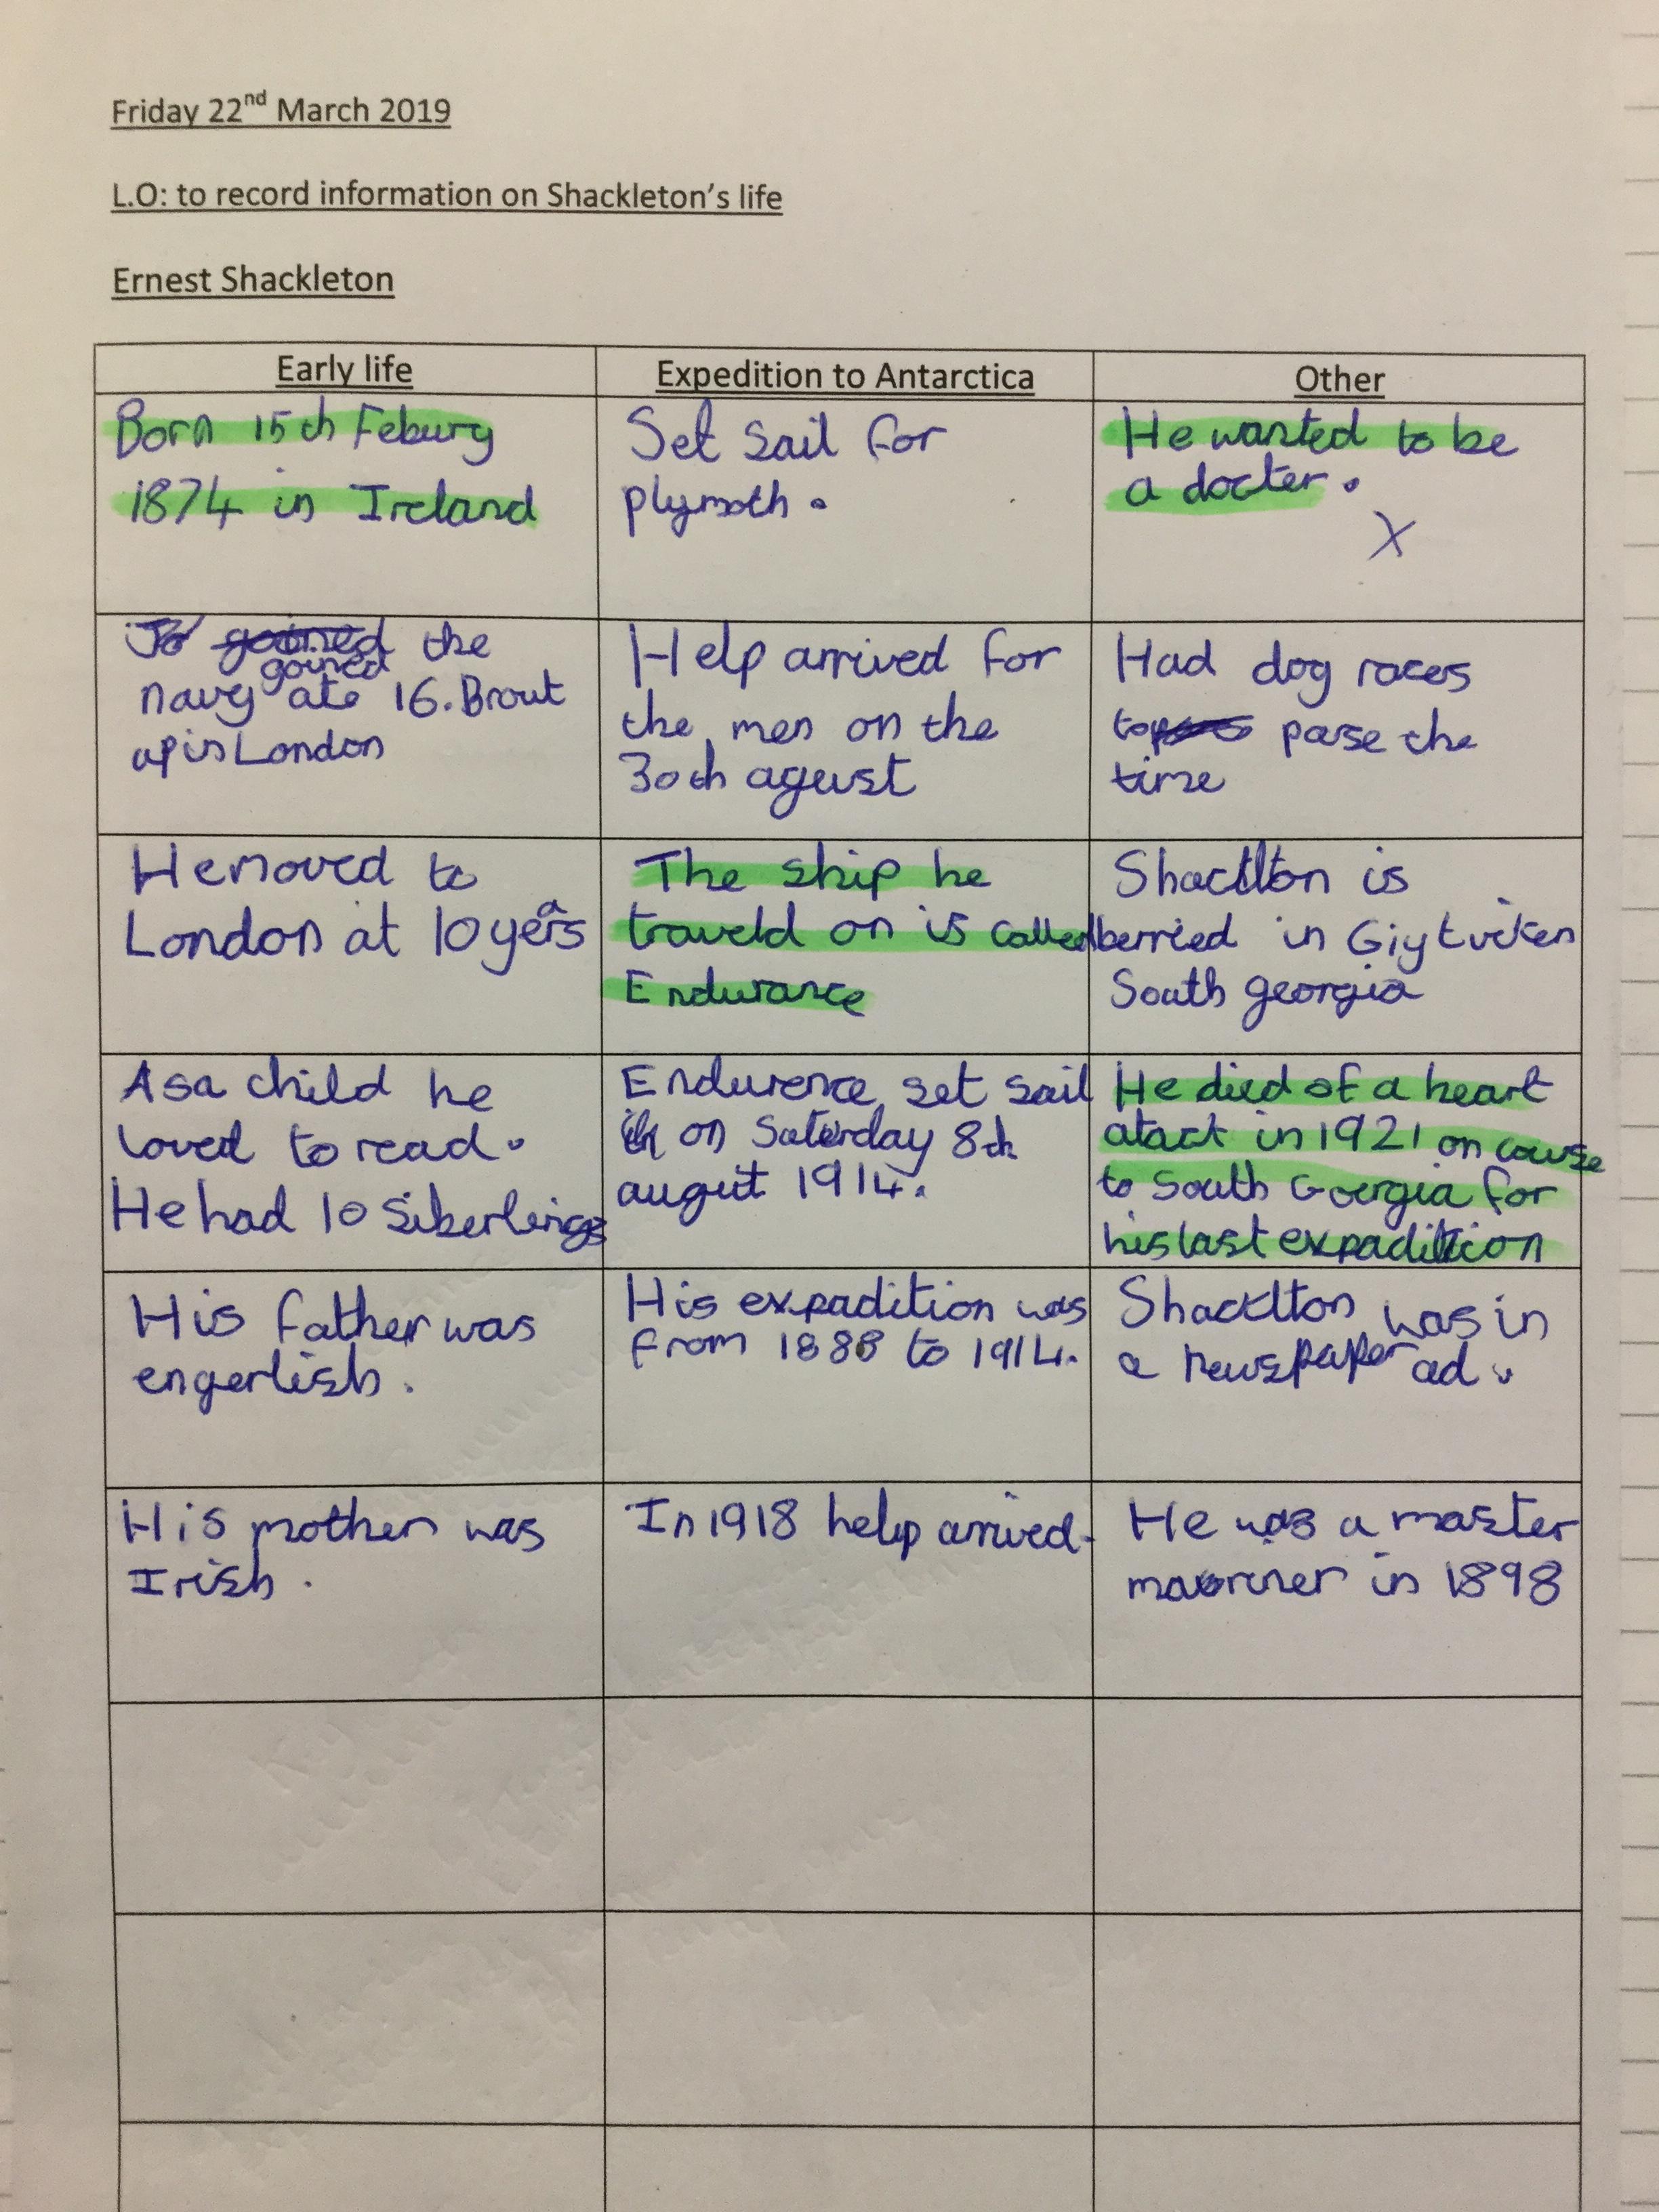 Friday 22nd March 2019
L.O: to record information on Shackleton's life
Ernest Shackleton
Early life
Expedition to Antarctica
Other
Born 15th Febury
1874 in Ireland
Set sail for
plymoth.
He wanted to be
a docter.
X
goined the
goined
navy ate 16. Brout
up in London
Help arrived for
the men on the
30th ageust
Had dog races
to passe the
time
He moved to
London at 10 years
The ship he
traveld on is called
Endurance
Shacklton is
berried in
South georgia
As a child he
loved to read.
He had 10 Siberlings
Endurence set sail
on Saterday 8th
august 1914.
He died of a heart
atact in 1921 on course
to South Goergia for
his last expadition
His father was
engerlish.
His expadition was
from 1888 to 1914.
Shacklton was in
a newspaper ad.
His mother was
Irish.
In 1918 help arrived.
He was a master
in 1898